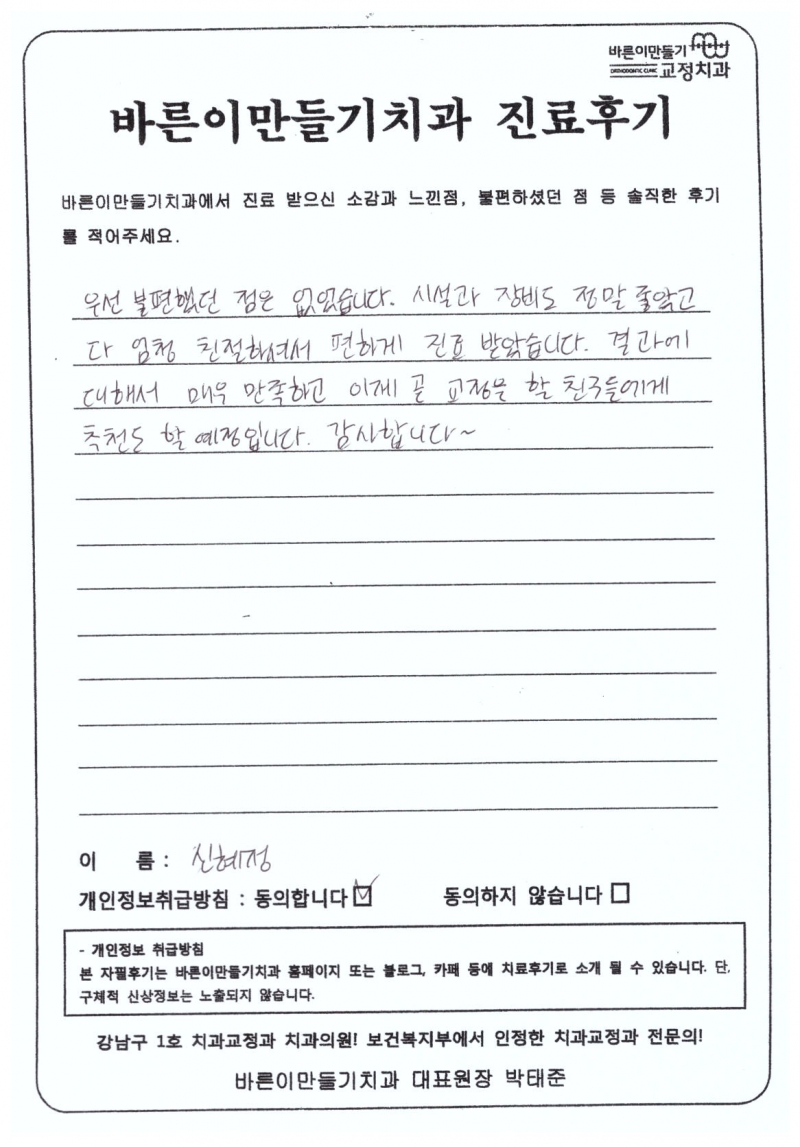 바른이만들기
ORTHODONTIC CLINIC 교정치과
바른이만들기치과 진료후기
바른이만들기치과에서 진료 받으신 소감과 느낀점, 불편하셨던 점 등 솔직한 후기
를 적어주세요.
우선 불편했던 점은 없었습니다. 시설과 장비도 정말 좋았고
다 엄청 친절하셔서 편하게 진료 받았습니다. 결과에
대해서 매우 만족하고 이제 곧 교정을 할 친구들에게
추천도 할 예정입니다. 감사합니다~
이 름 : 신혜정
개인정보취급방침 : 동의합니다 ☑ 동의하지 않습니다 ☐
- 개인정보 취급방침
본 자필후기는 바른이만들기치과 홈페이지 또는 블로그, 카페 등에 치료후기로 소개 될 수 있습니다. 단,
구체적 신상정보는 노출되지 않습니다.
강남구 1호 치과교정과 치과의원! 보건복지부에서 인정한 치과교정과 전문의!
바른이만들기치과 대표원장 박태준